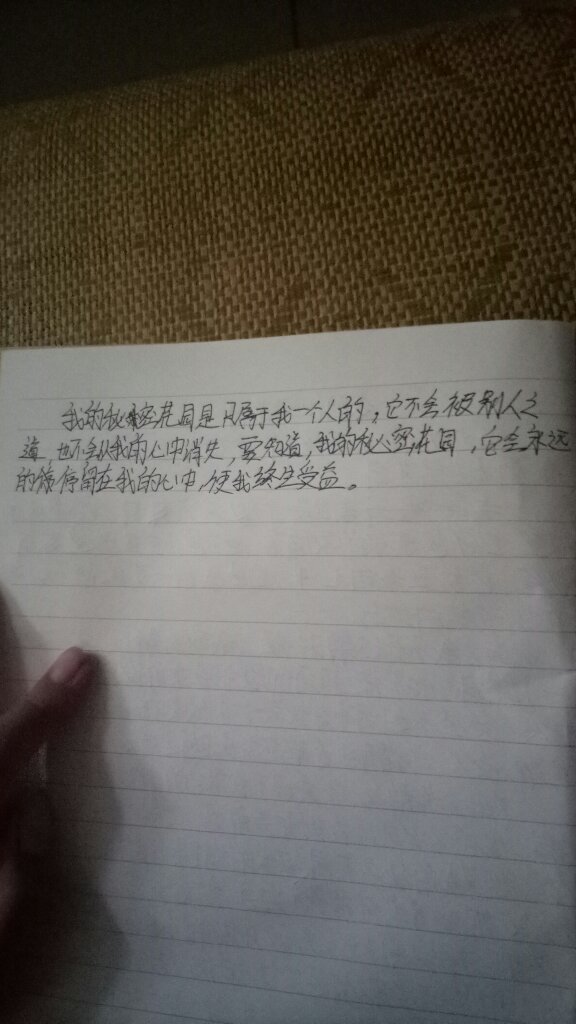 我的秘密花园是只属于我一个人的，它不会被别人之
道，也不会从我的心中消失，要知道，我的秘密花园，它会永远
的停留在我的心中，使我终生受益。